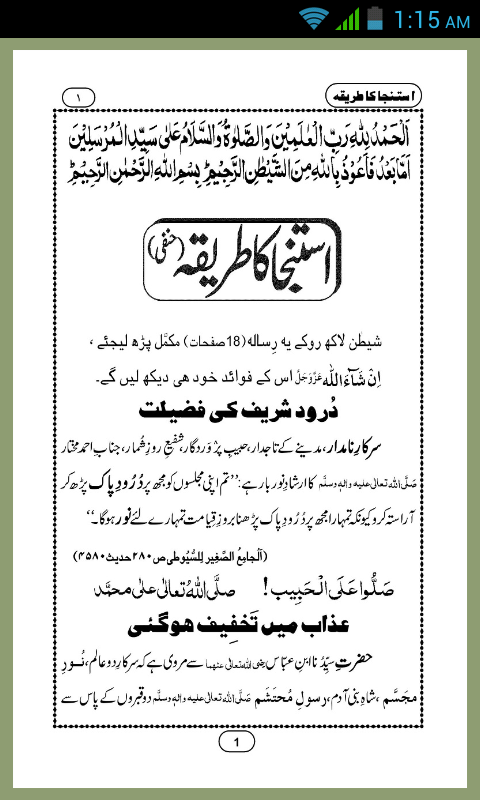 1:15 AM
استنجا کا طریقہ
۱
اَلْحَمْدُ لِلّٰهِ رَبِّ الْعٰلَمِيْنَ وَالصَّلٰوةُ وَالسَّلَامُ عَلٰی سَيِّدِ الْمُرْسَلِيْنَ
اَمَّا بَعْدُ فَاَعُوْذُ بِاللّٰهِ مِنَ الشَّيْطٰنِ الرَّجِيْمِ ؕ بِسْمِ اللّٰهِ الرَّحْمٰنِ الرَّحِيْمِ ؕ
استنجا کا طریقہ (حنفی)
شیطٰن لاکھ روکے یہ رِسالہ (18 صفحات) مکمَّل پڑھ لیجئے ،
اِنْ شَآءَاللّٰه عَزَّوَجَلَّ اس کے فوائد خود ھی دیکھ لیں گے۔
دُرود شریف کی فضیلت
سرکارِ نامدار، مدینے کے تاجدار، حبیبِ پَرْوَردگار، شفیعِ روزِ شُمار، جنابِ احمدِ مختار
صَلَّی اللہ تعالٰی علیہ واٰلہٖ وسلَّم کا ارشادِ نور بار ہے: ’’تم اپنی مجلسوں کو مجھ پر دُرُودِ پاک پڑھ کر
آراستہ کرو کیونکہ تمہارا مجھ پر دُرُودِ پاک پڑھنا بروزِ قِیامت تمہارے لئے نور ہوگا۔‘‘
(اَلْجامِعُ الصَّغِير لِلسُّيُوطى ص ۲۸۰ حديث ۴۵۸۰)
صَلُّوا عَلَی الْحَبِیب ! صلَّی اللّٰهُ تعالٰی علٰی محمَّد
عذاب میں تَخفِیف ہوگئی
حضرتِ سیِّدُنا ابنِ عبّاس رضی اللہ تعالٰی عنہما سے مروی ہے کہ سرکارِ دو عالم، نُورِ
مجَسَّم ، شاہِ بنی آدم ، رسولِ مُحتَشَم صَلَّی اللہ تعالٰی علیہ واٰلہٖ وسلَّم دو قبروں کے پاس سے
1